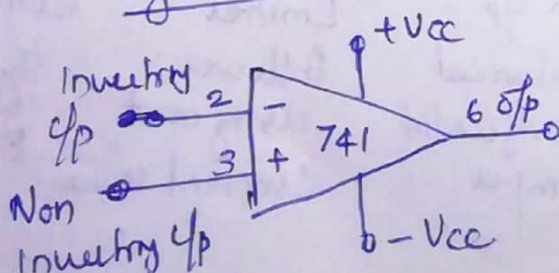 +Vcc
Inverting
i/p
2
-
6 o/p
741
3
+
Non
Inverting i/p
- Vcc